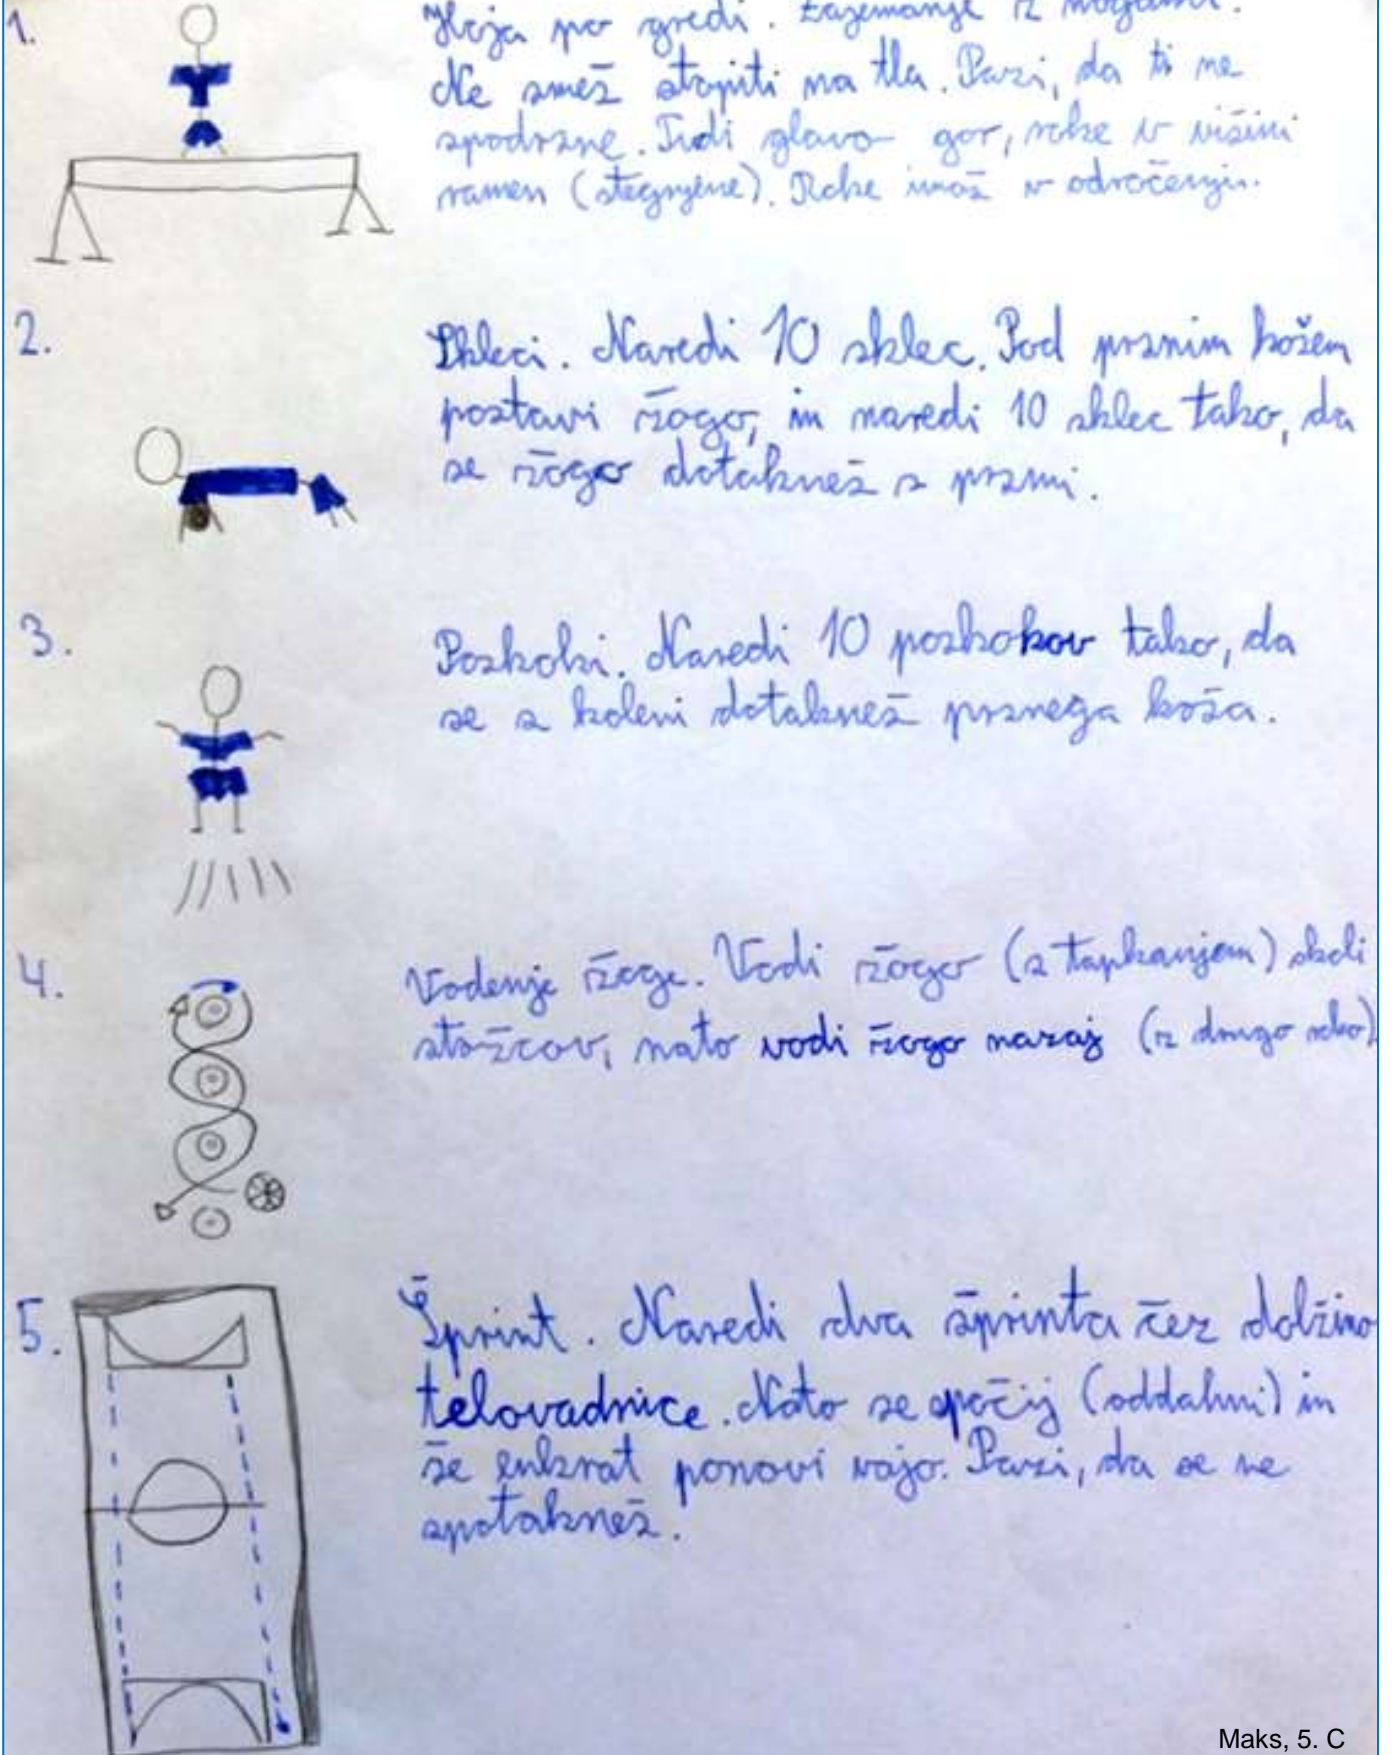 1.
Hoja po gredi. Zajemanje z nogami.
Ne smeš stopiti na tla. Pazi, da ti ne
spodrsne. Tudi glavo gor, roke v višini
ramen (stegnjene). Roke imaš v odročenju.
2.
Skleci. Naredi 10 sklec. Pod prsnim košem
postavi žogo, in naredi 10 sklec tako, da
se žogo dotakneš s prsmi.
3.
Poskoki. Naredi 10 poskokov tako, da
se s koleni dotakneš prsnega koša.
4.
Vodenje žoge. Vodi žogo (s tapkanjem) okoli
stožcov, nato vodi žogo nazaj (z drugo roko)
5.
Šprint. Naredi dva šprinta čez dolžino
telovadnice. Nato se spočij (oddahni) in
še enkrat ponovi vajo. Pazi, da se ne
spotakneš.
Maks, 5. C